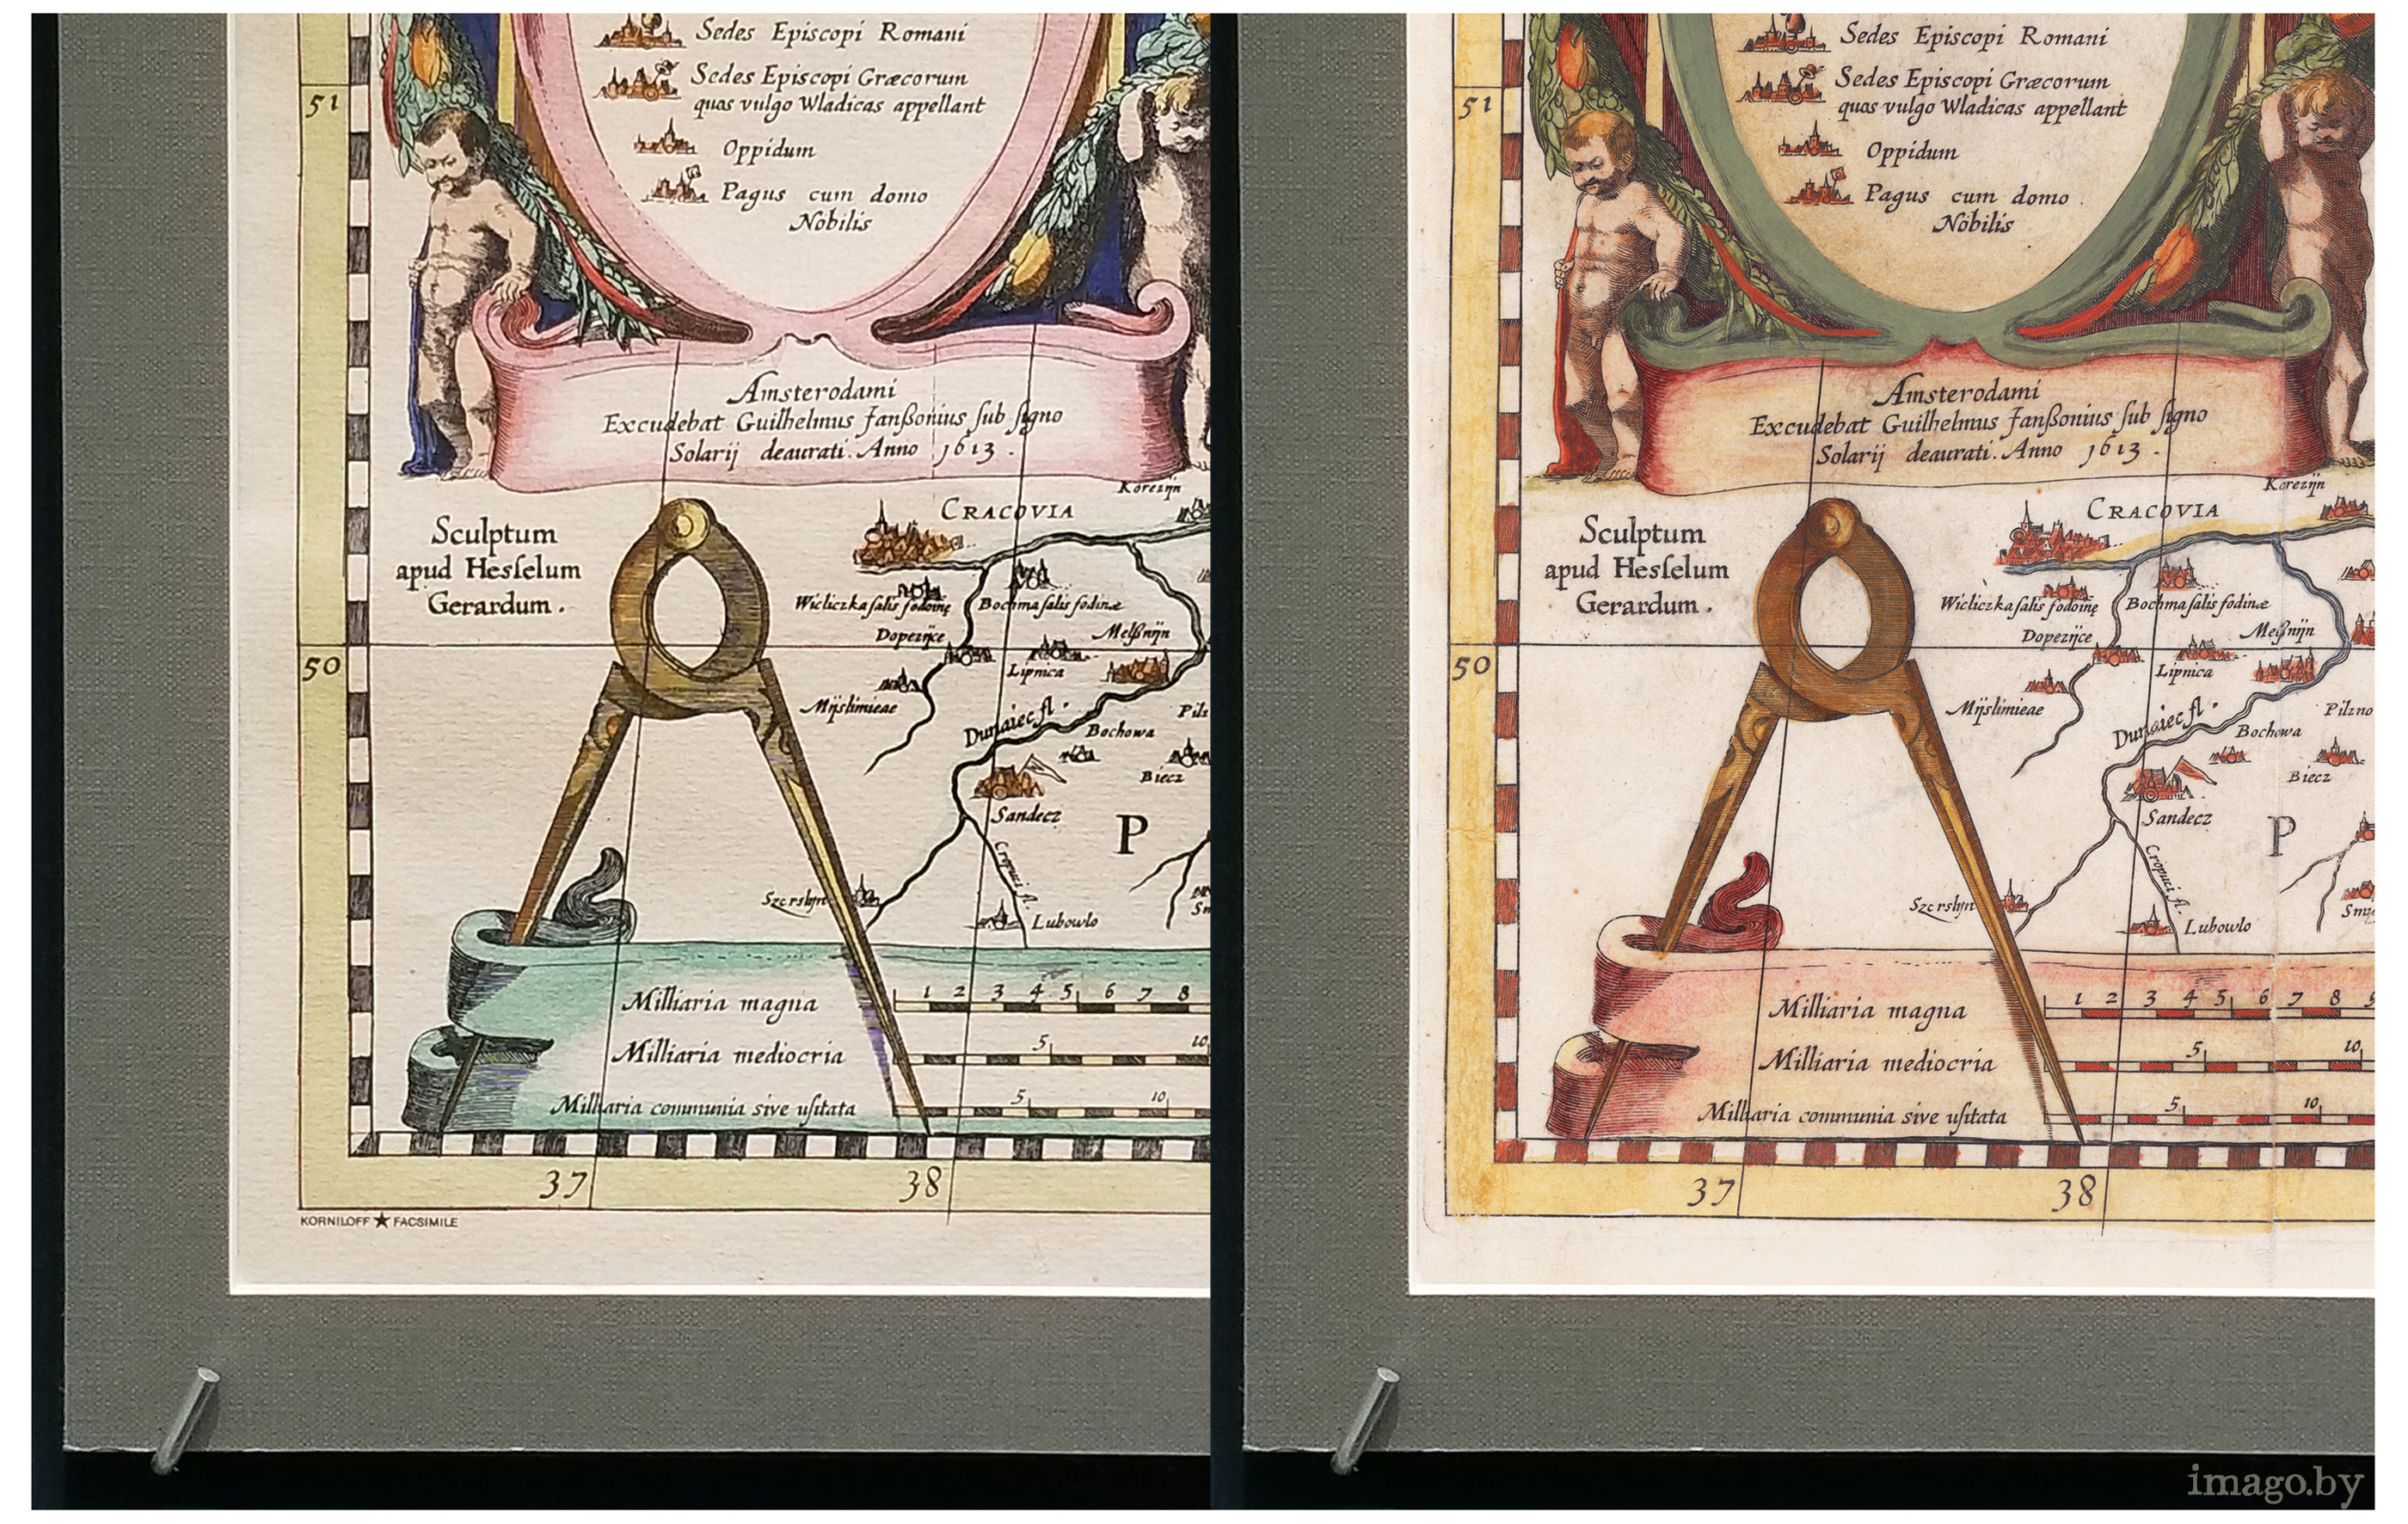 Sedes Episcopi Romani
Sedes Episcopi Græcorum
quas vulgo Wladicas appellant
Oppidum
Pagus cum domo
Nobilis
51
Amsterodami
Excudebat Guilhelmus Janßonius ſub ſigno
Solarij deaurati. Anno 1613.
Korezijn
CRACOVIA
Sculptum
apud Hesſelum
Gerardum.
Wicliczka ſalis fodoinę
Bochma ſalis fodinæ
Dopezijce
Melßnijn
50
Lipnica
Mijslimieae
Dunaiec fl.
Bochowa
Biecz
Sandecz
P
Cropuci fl.
Szcrslijn
Lubowlo
Milliaria magna
1 2 3 4 5 6 7 8
Milliaria mediocria
5 10
Milliaria communia sive uſitata
5 10
37 38
KORNILOFF ★ FACSIMILE
Sedes Episcopi Romani
Sedes Episcopi Græcorum
quas vulgo Wladicas appellant
Oppidum
Pagus cum domo
Nobilis
51
Amsterodami
Excudebat Guilhelmus Janßonius ſub ſigno
Solarij deaurati. Anno 1613.
Korezijn
CRACOVIA
Sculptum
apud Hesſelum
Gerardum.
Wicliczka ſalis fodoinę
Bochma ſalis fodinæ
Dopezijce
Meßnijn
50
Lipnica
Mijslimieae
Dunaiec fl.
Pilzno
Bochowa
Biecz
Sandecz
P
Cropuci fl.
Szcrslijn
Lubowlo
Milliaria magna
1 2 3 4 5 6 7 8
Milliaria mediocria
5 10
Milliaria communia sive uſitata
5 10
37 38
imago.by